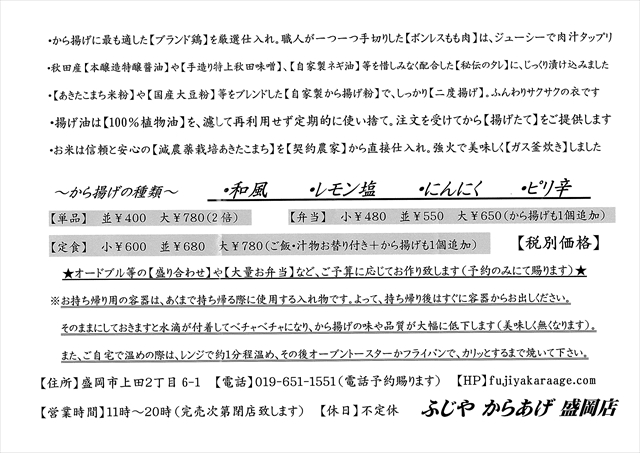 ・から揚げに最も適した【ブランド鶏】を厳選仕入れ。職人が一つ一つ手切りした【ボンレスもも肉】は、ジューシーで肉汁タップリ
・秋田産【本醸造特醸醤油】や【手造り特上秋田味噌】、【自家製ネギ油】等を惜しみなく配合した【秘伝のタレ】に、じっくり漬け込みました
・【あきたこまち米粉】や【国産大豆粉】等をブレンドした【自家製から揚げ粉】で、しっかり【二度揚げ】。ふんわりサクサクの衣です
・揚げ油は【100％植物油】を、濾して再利用せず定期的に使い捨て。注文を受けてから【揚げたて】をご提供します
・お米は信頼と安心の【減農薬栽培あきたこまち】を【契約農家】から直接仕入れ。強火で美味しく【ガス釜炊き】しました
～から揚げの種類～ ・和風 ・レモン塩 ・にんにく ・ピリ辛
【単品】 並￥400 大￥780(2倍) 【弁当】 小￥480 並￥550 大￥650(から揚げも1個追加)
【定食】 小￥600 並￥680 大￥780(ご飯・汁物お替り付き＋から揚げも1個追加) 【税別価格】
★オードブル等の【盛り合わせ】や【大量お弁当】など、ご予算に応じてお作り致します(予約のみにて賜ります)★
※お持ち帰り用の容器は、あくまで持ち帰る際に使用する入れ物です。よって、持ち帰り後はすぐに容器からお出しください。
そのままにしておきますと水滴が付着してベチャベチャになり、から揚げの味や品質が大幅に低下します(美味しく無くなります)。
また、ご自宅で温めの際は、レンジで約1分程温め、その後オーブントースターかフライパンで、カリッとするまで焼いて下さい。
【住所】盛岡市上田2丁目6-1 【電話】019-651-1551(電話予約賜ります) 【HP】fujiyakaraage.com
【営業時間】11時～20時(完売次第閉店致します) 【休日】不定休 ふじや からあげ 盛岡店